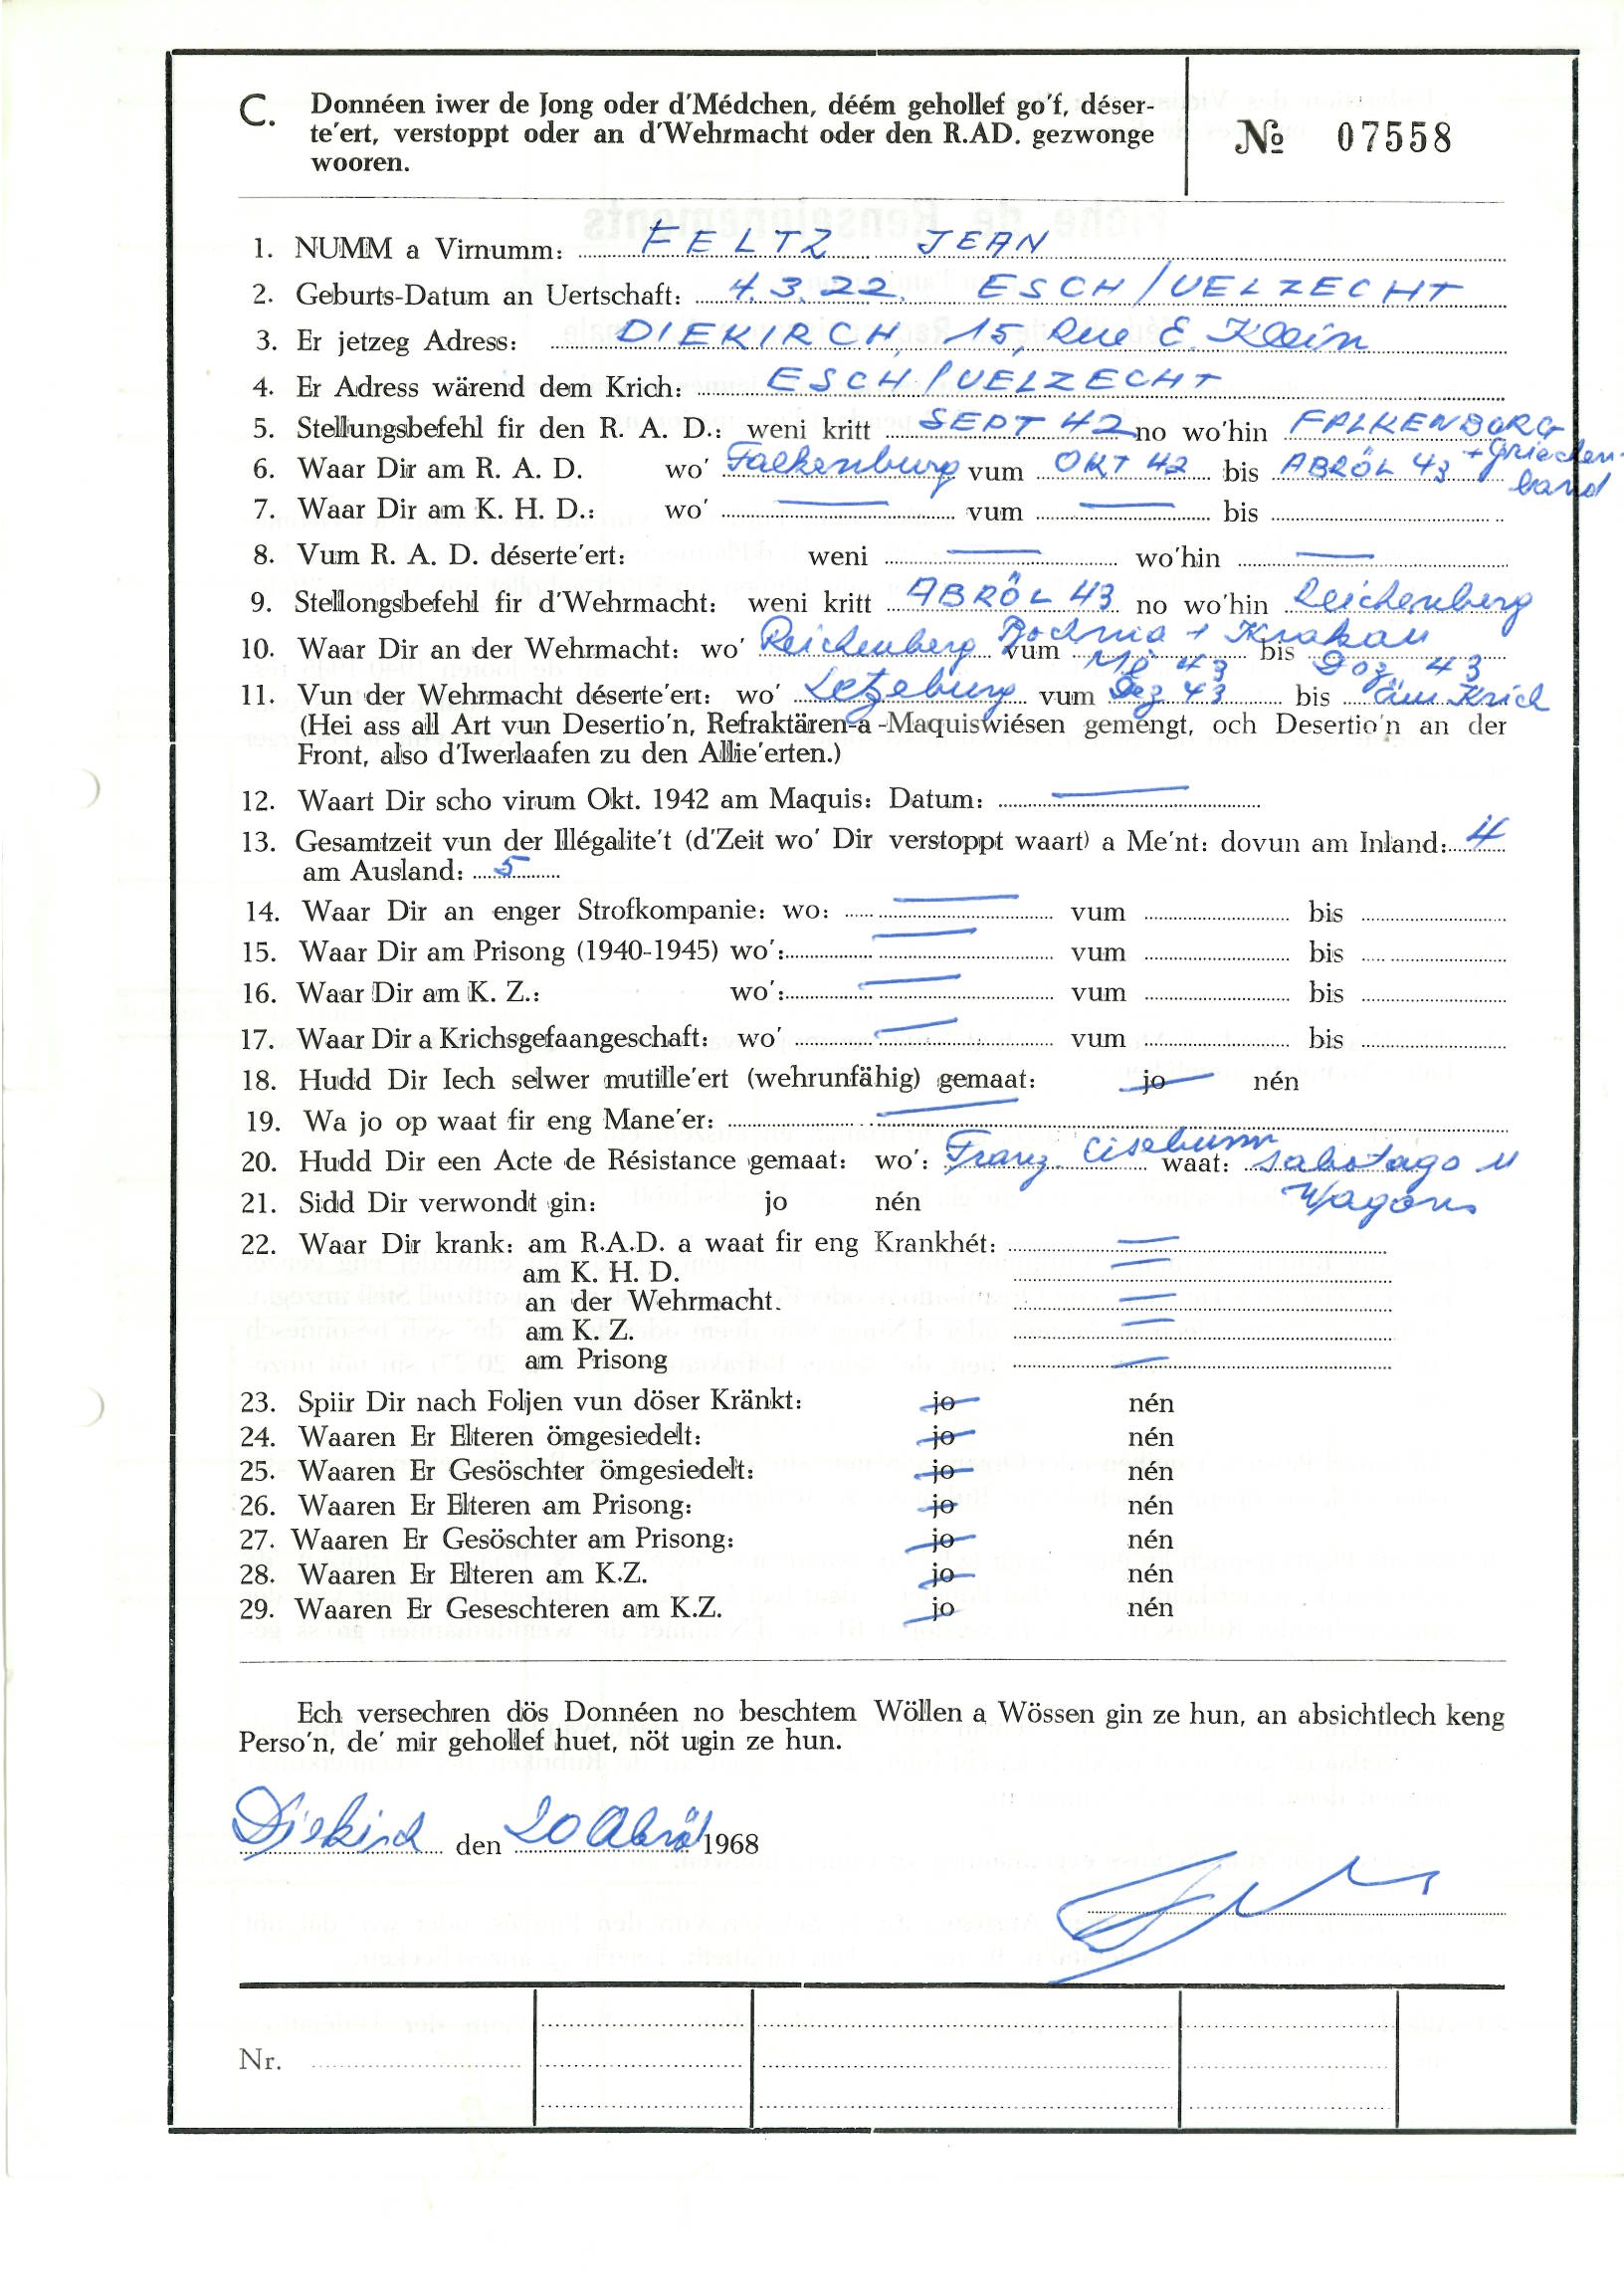 C. Donnéen iwer de Jong oder d'Médchen, déém gehollef go'f, déser-
te'ert, verstoppt oder an d'Wehrmacht oder den R.AD. gezwonge
wooren.
№ 07558
1. NUMM a Virnumm: FELTZ JEAN
2. Geburts-Datum an Uertschaft: 4.3.22. ESCH/UELZECHT
3. Er jetzeg Adress: DIEKIRCH, 15, Rue E. Klein
4. Er Adress wärend dem Krich: ESCH/UELZECHT
5. Stellungsbefehl fir den R. A. D.: weni kritt SEPT 42 no wo'hin FALKENBURG
6. Waar Dir am R. A. D. wo' Falkenburg vum OKT 42 bis ABRÖL 43 + Griechen-
land
7. Waar Dir am K. H. D.: wo' — vum — bis
8. Vum R. A. D. déserte'ert: weni — wo'hin —
9. Stellongsbefehl fir d'Wehrmacht: weni kritt ABRÖL 43 no wo'hin Reichenberg
10. Waar Dir an der Wehrmacht: wo' Reichenberg Bochnia + Krakau vum Mē 43 bis Dez. 43
11. Vun der Wehrmacht déserte'ert: wo' Letzeburg vum Dez 43 bis äm Krich
(Hei ass all Art vun Desertio'n, Refraktären-a-Maquiswiésen gemengt, och Desertio'n an der
Front, also d'Iwerlaafen zu den Allie'erten.)
12. Waart Dir scho virum Okt. 1942 am Maquis: Datum: —
13. Gesamtzeit vun der Illégalite't (d'Zeit wo' Dir verstoppt waart) a Me'nt: dovun am Inland: 4
am Ausland: 5
14. Waar Dir an enger Strofkompanie: wo: — vum bis
15. Waar Dir am Prisong (1940-1945) wo': — vum bis
16. Waar Dir am K. Z.: wo': — vum bis
17. Waar Dir a Krichsgefaangeschaft: wo' — vum bis
18. Hudd Dir Iech selwer mutille'ert (wehrunfähig) gemaat: jo nén
19. Wa jo op waat fir eng Mane'er: —
20. Hudd Dir een Acte de Résistance gemaat: wo': Franz. Eisebunn waat: Sabotage
Wagons
21. Sidd Dir verwondt gin: jo nén
22. Waar Dir krank: am R.A.D. a waat fir eng Krankhét: —
am K. H. D. —
an der Wehrmacht. —
am K. Z. —
am Prisong —
23. Spiir Dir nach Foljen vun döser Kränkt: jo nén
24. Waaren Er Elteren ömgesiedelt: jo nén
25. Waaren Er Gesöschter ömgesiedelt: jo nén
26. Waaren Er Elteren am Prisong: jo nén
27. Waaren Er Gesöschter am Prisong: jo nén
28. Waaren Er Elteren am K.Z. jo nén
29. Waaren Er Geseschteren am K.Z. jo nén
Ech versechren dös Donnéen no beschtem Wöllen a Wössen gin ze hun, an absichtlech keng
Perso'n, de' mir gehollef huet, nöt ugin ze hun.
Diekirch den 20 Abröl 1968
Nr.